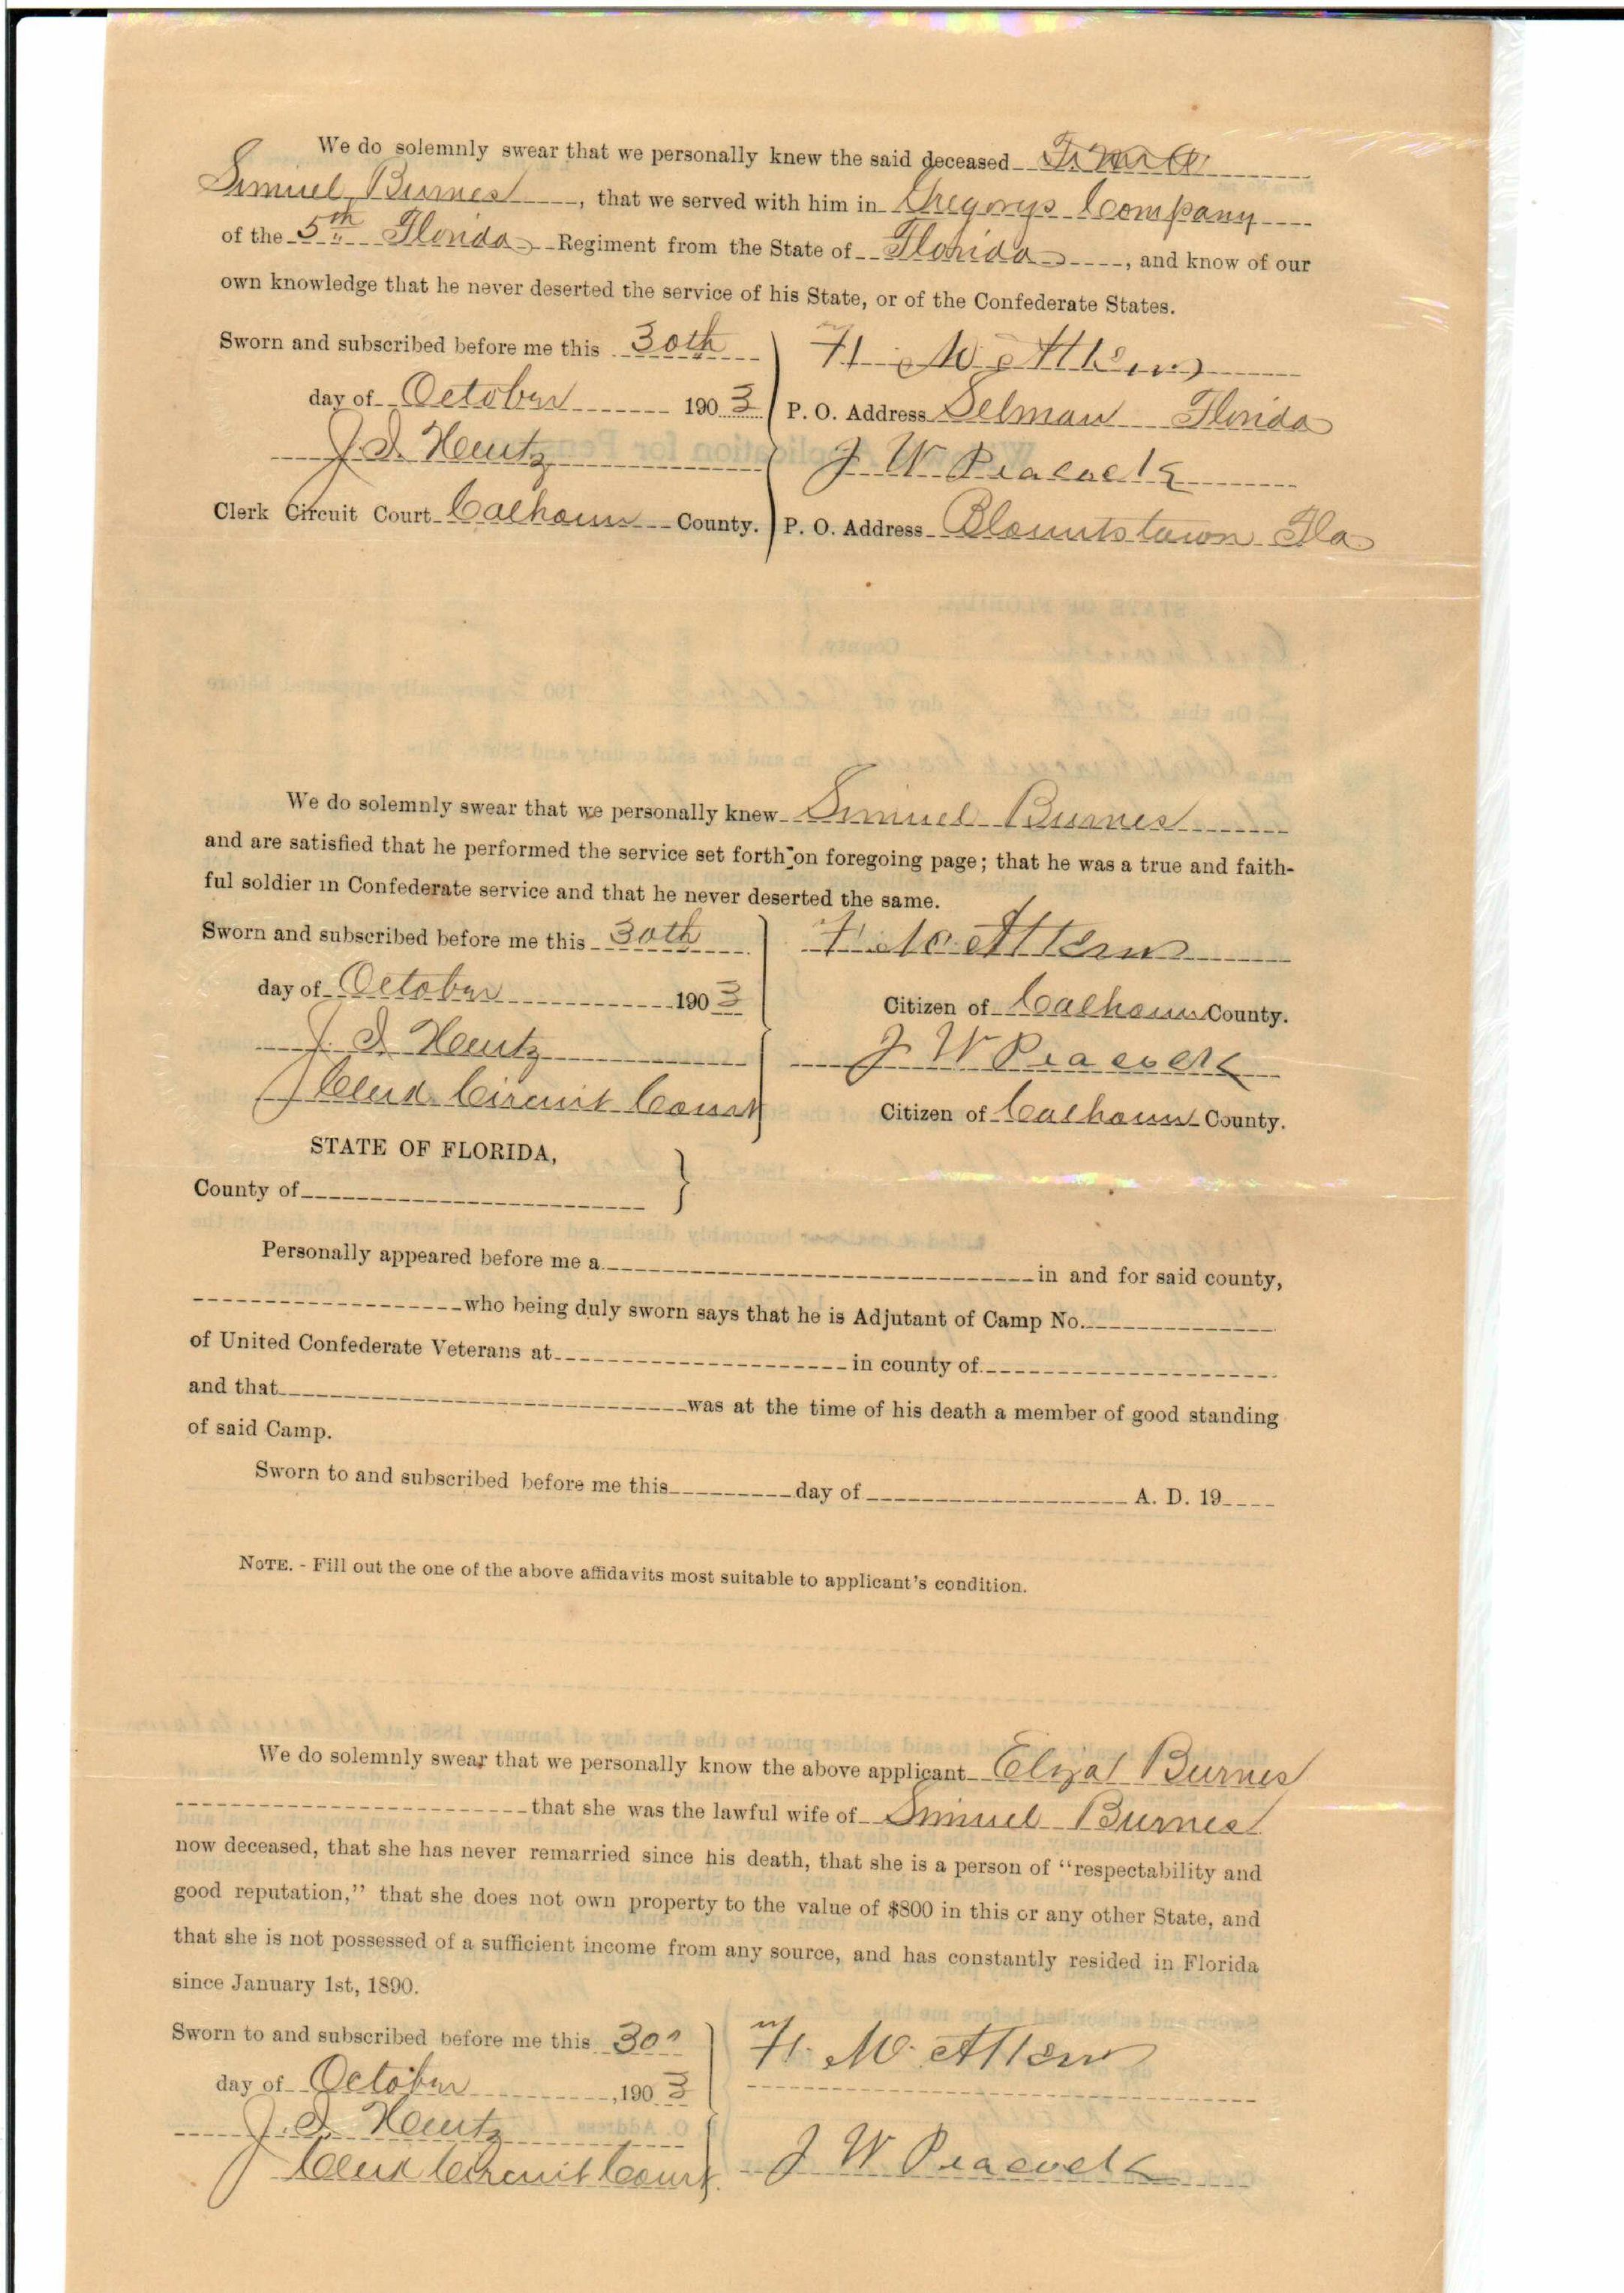 We do solemnly swear that we personally knew the said deceased
Simuel Burnes, that we served with him in Gregorys Company
of the 5th Florida Regiment from the State of Florida, and know of our
own knowledge that he never deserted the service of his State, or of the Confederate States.
Sworn and subscribed before me this 30th
F. M. Atkins
day of October 1903
P. O. Address Selman Florida
J. D. Hentz
J W Peacock
Clerk Circuit Court Calhoun County.
P. O. Address Blountstown Fla
We do solemnly swear that we personally knew Simuel Burnes
and are satisfied that he performed the service set forth on foregoing page; that he was a true and faith-
ful soldier in Confederate service and that he never deserted the same.
Sworn and subscribed before me this 30th
F. M. Atkins
day of October 1903
Citizen of Calhoun County.
J. D. Hentz
J W Peacock
Clerk Circuit Court
Citizen of Calhoun County.
STATE OF FLORIDA,
County of
Personally appeared before me a in and for said county,
who being duly sworn says that he is Adjutant of Camp No.
of United Confederate Veterans at in county of
and that was at the time of his death a member of good standing
of said Camp.
Sworn to and subscribed before me this day of A. D. 19
NOTE. - Fill out the one of the above affidavits most suitable to applicant's condition.
We do solemnly swear that we personally know the above applicant Eliza Burnes
that she was the lawful wife of Simuel Burnes
now deceased, that she has never remarried since his death, that she is a person of "respectability and
good reputation," that she does not own property to the value of $800 in this or any other State, and
that she is not possessed of a sufficient income from any source, and has constantly resided in Florida
since January 1st, 1890.
Sworn to and subscribed before me this 30
F. M. Atkins
day of October, 1903
J. D. Hentz
J W Peacock
Clerk Circuit Court